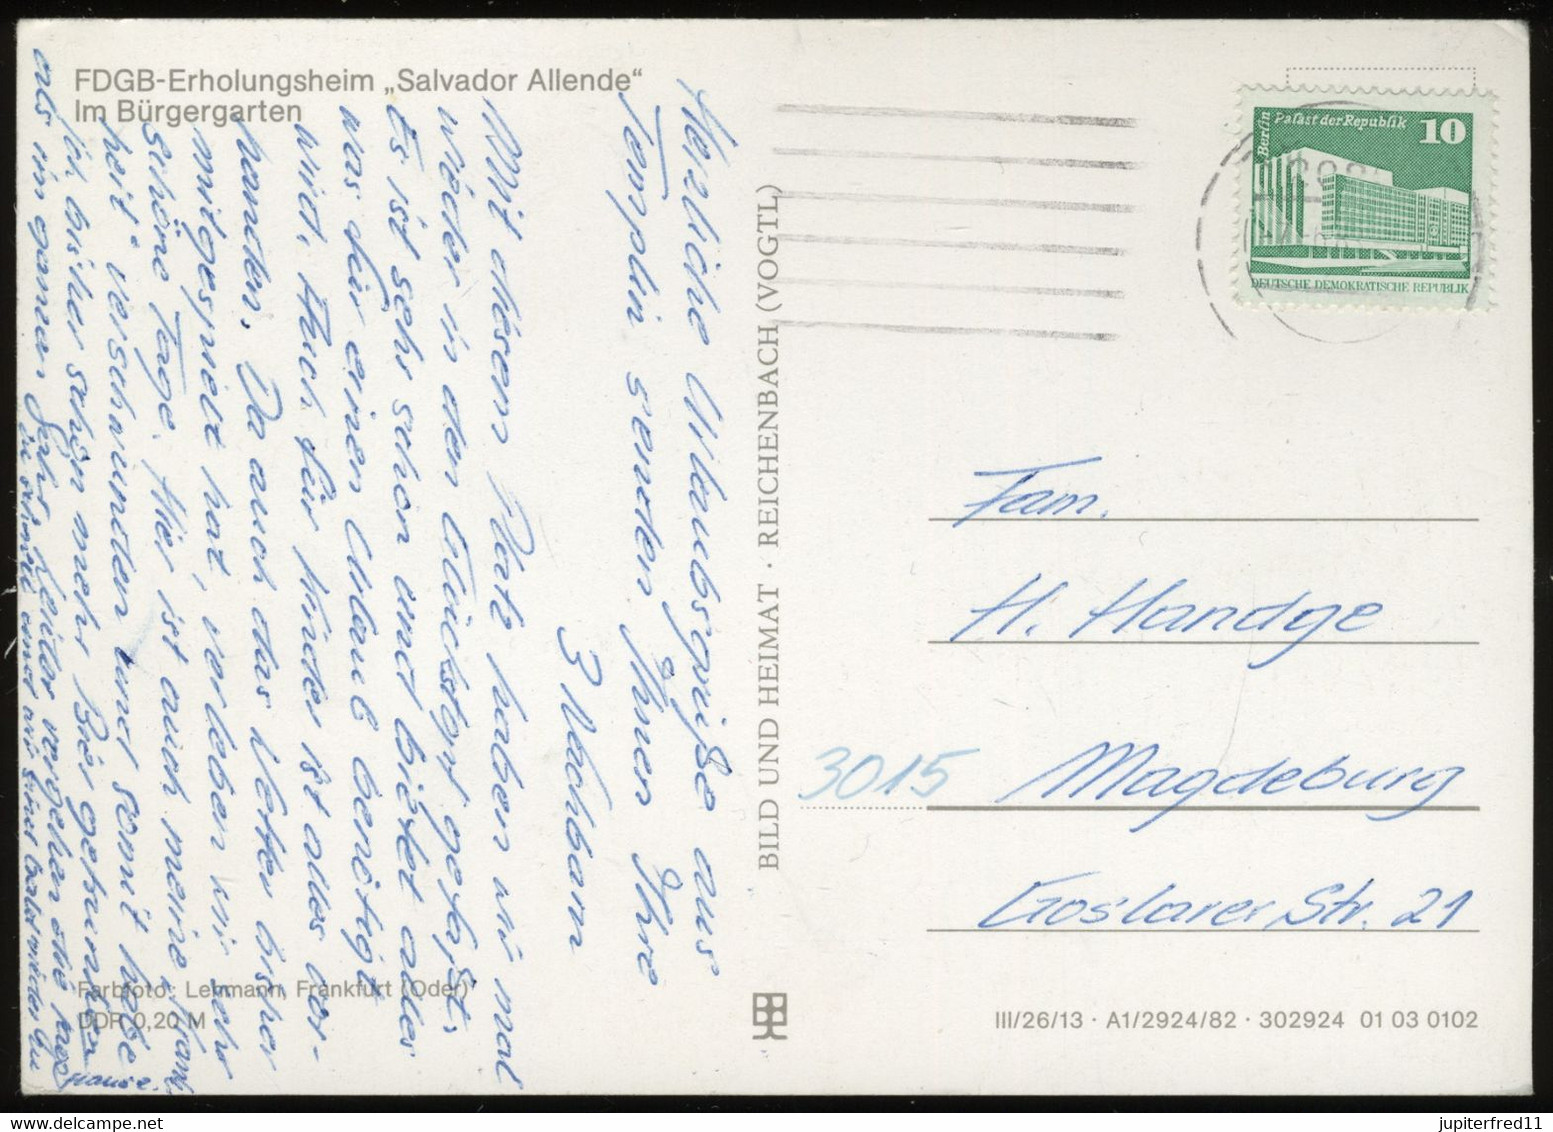 FDGB-Erholungsheim „Salvador Allende“
Im Bürgergarten
Herzliche Urlaubsgrüße aus
Templin senden Ihnen Ihre
3 Nachbarn
Mit diesem Platz haben wir mal
wieder in den Glückstopf gefaßt.
Es ist sehr schön und bietet alles
was für einen Urlaub benötigt
wird. Auch für Kinder ist alles vor-
handen. Da auch das Wetter bisher
mitgespielt hat, verleben wir sehr
schöne Tage. Hier ist auch meine "Krank-
heit" verschwunden und somit habe
ich bisher schon mehr Bier getrunken
als im ganzen Jahr. Leider vergehen die Tage
zu schnell und wir sind bald wieder zu
Hause.
Farbfoto: Lehmann, Frankfurt (Oder)
DDR 0,20 M
BILD UND HEIMAT · REICHENBACH (VOGTL)
Berlin
Palast der Republik
10
DEUTSCHE DEMOKRATISCHE REPUBLIK
Fam.
H. Handge
3015 Magdeburg
Goslarer Str. 21
III/26/13 · A1/2924/82 · 302924 01 03 0102
jupiterfred11